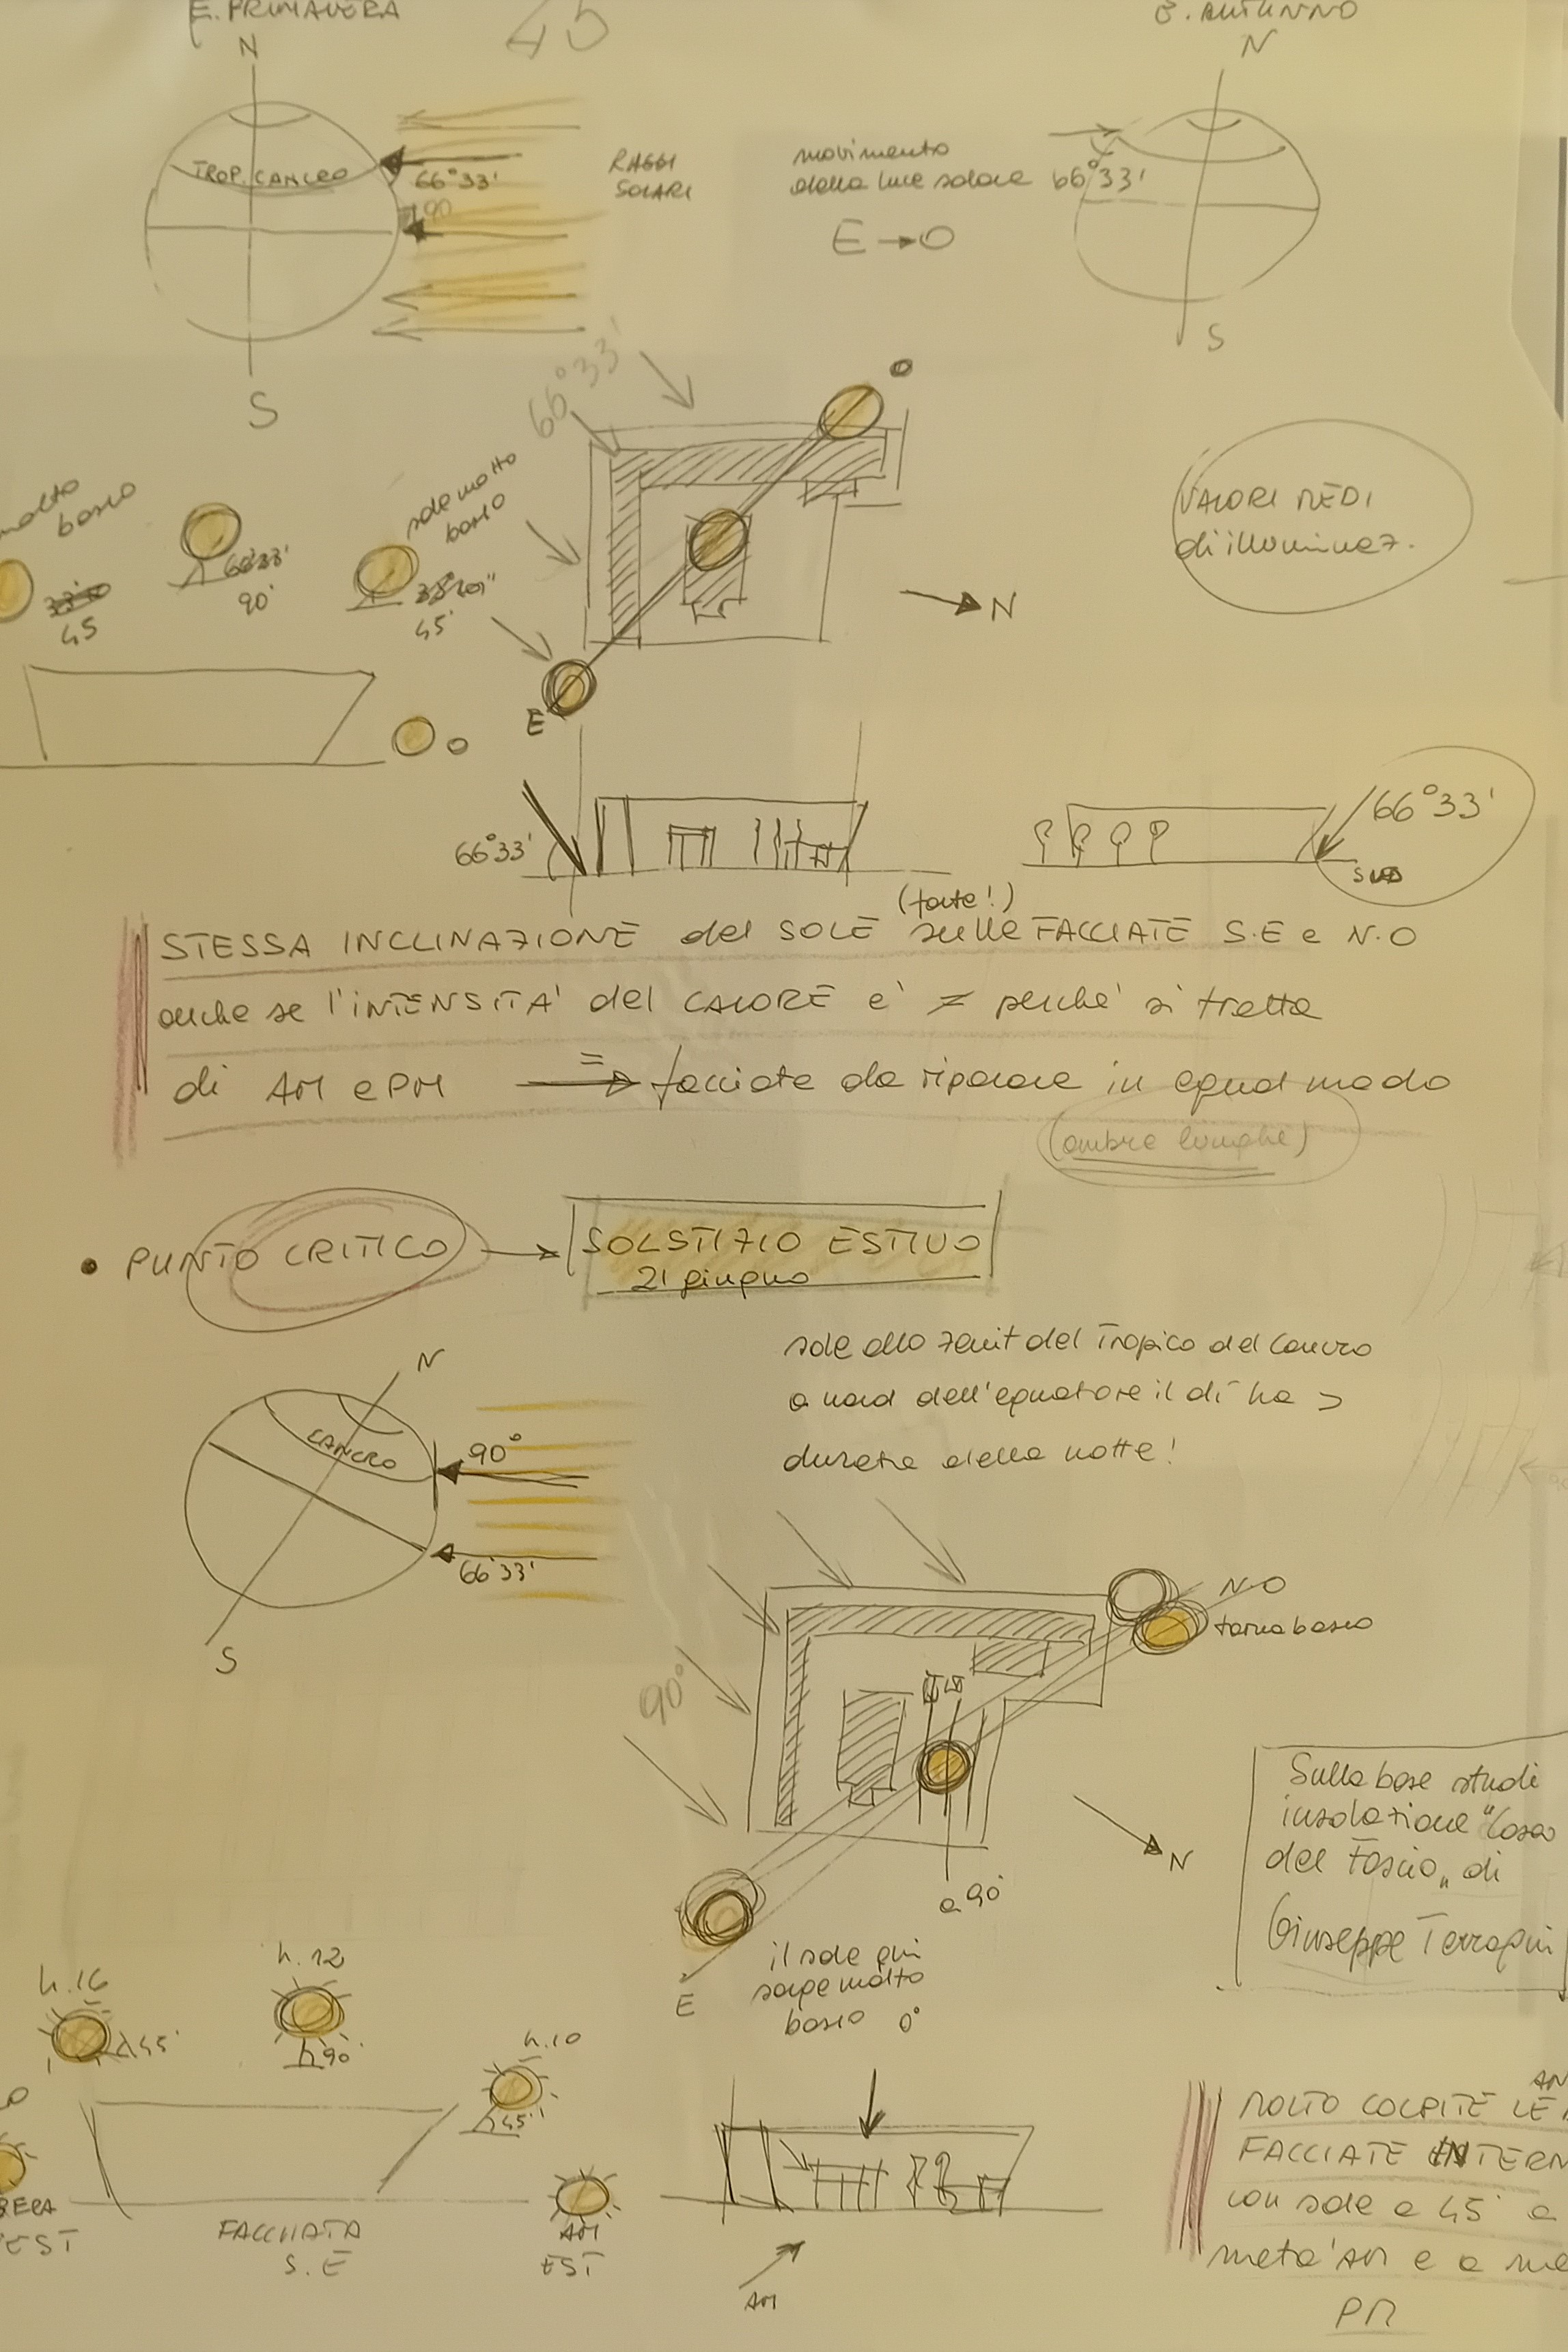 E. PRIMAVERA
45
E. AUTUNNO
N
N
TROP. CANCRO
66°33'
90
RAGGI
SOLARI
movimento
della luce solare 66°33'
E → O
S
S
66°33'
O
molto
basso
sole molto
basso
66°33'
90°
45
45°
VALORI MEDI
di illuminaz.
N
E
O
66°33'
66°33'
SUD
(forte!)
STESSA INCLINAZIONE del SOLE sulle FACCIATE S.E e N.O
anche se l'INTENSITA' del CALORE e' ≠ perche' si tratta
di AM e PM = → facciate da riparare in egual modo
(ombre lunghe)
• PUNTO CRITICO → SOLSTIZIO ESTIVO
21 giugno
sole allo zenit del Tropico del Cancro
a nord dell'equatore il dì ha >
durata della notte!
N
CANCRO
90°
66°33'
S
N-O
torna basso
90°
N
a 90°
E
il sole qui
sorge molto
basso 0°
Sulla base studi
insolazione "Casa
del Fascio" di
Giuseppe Terragni
h. 16
45°
h. 12
90°
h. 10
45°
FACCIATA
S. E
AM
EST
AM
MOLTO COLPITE LE
FACCIATE INTERN
con sole a 45° a
meta' AM e a me
PM